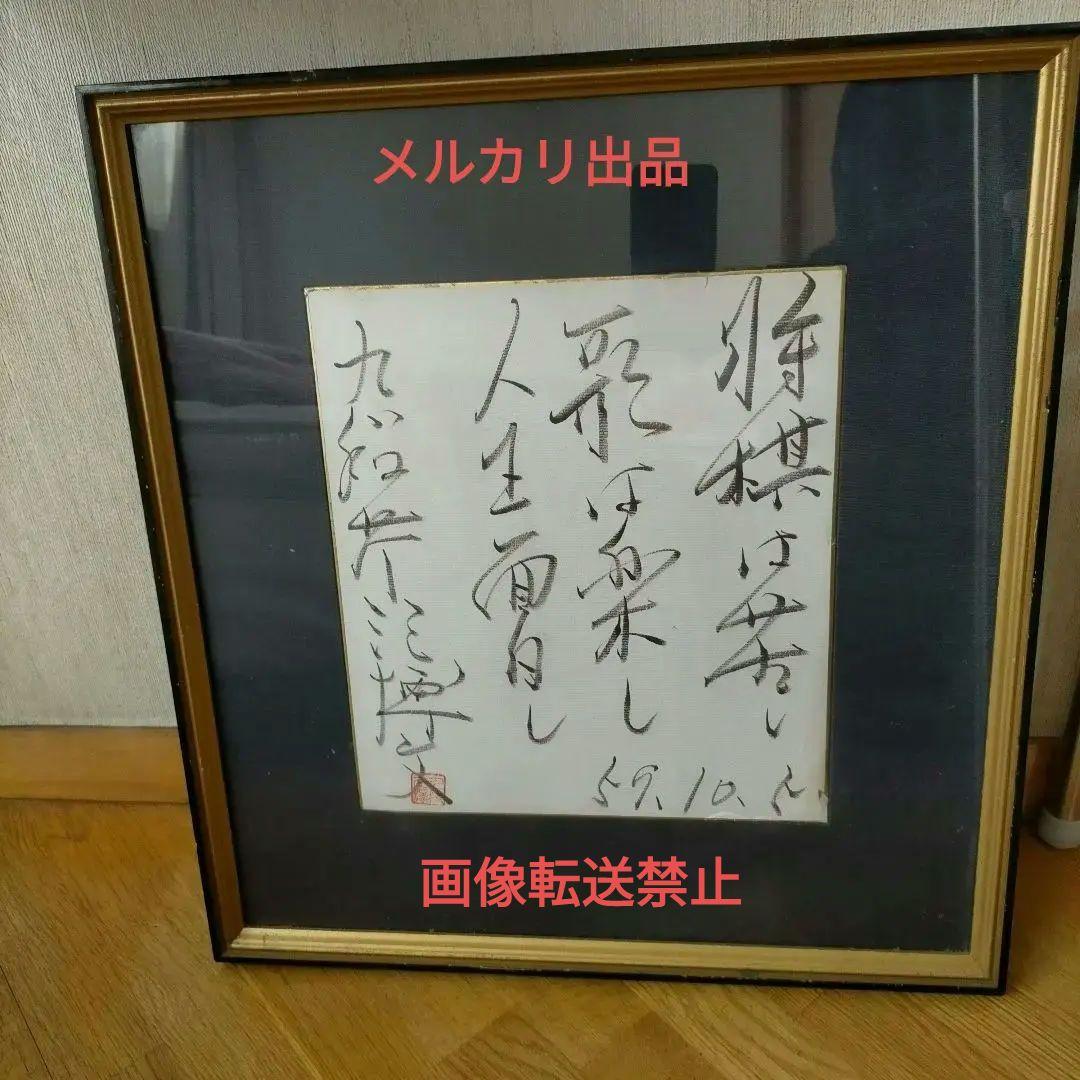 メルカリ出品
将棋は苦し
歌は楽し
人生面白し
九段
博文
59.10.
画像転送禁止